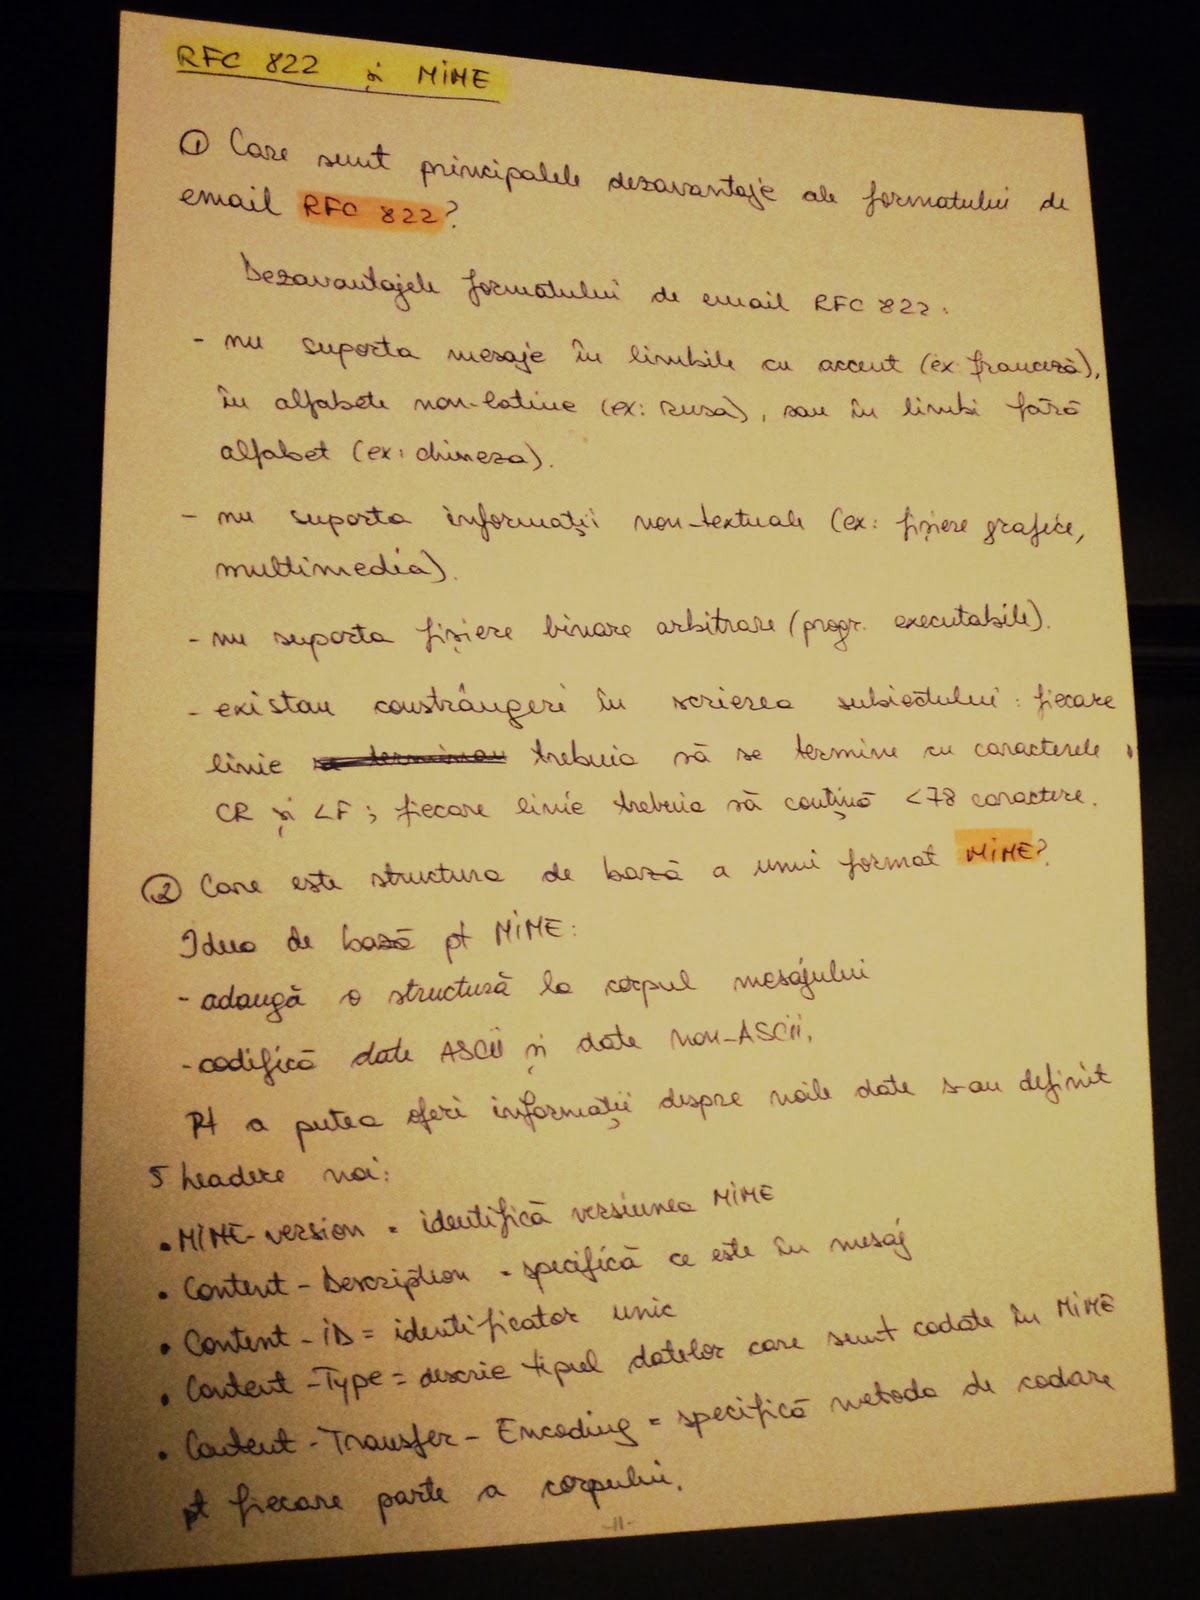 RFC 822 și MIME
① Care sunt principalele dezavantaje ale formatului de
email RFC 822?
Dezavantajele formatului de email RFC 822:
- nu suporta mesaje în limbile cu accent (ex: franceză),
în alfabete non-latine (ex: rusa), sau în limbi fără
alfabet (ex: chineza).
- nu suporta informații non-textuale (ex: fișiere grafice,
multimedia).
- nu suporta fișiere binare arbitrare (progr. executabile).
- existau constrângeri în scrierea subiectului: fiecare
linie trebuia să se termine cu caracterele
CR și LF; fiecare linie trebuia să conțină <78 caractere.
② Care este structura de bază a unui format MIME?
Ideea de bază pt MIME:
- adaugă o structură la corpul mesajului
- codifică date ASCII și date non-ASCII.
Pt a putea oferi informații despre noile date s-au definit
5 headere noi:
• MIME-version = identifică versiunea MIME
• Content-Description = specifică ce este în mesaj
• Content-ID = identificator unic
• Content-Type = descrie tipul datelor care sunt codate în MIME
• Content-Transfer-Encoding = specifică metoda de codare
pt fiecare parte a corpului.
-11-